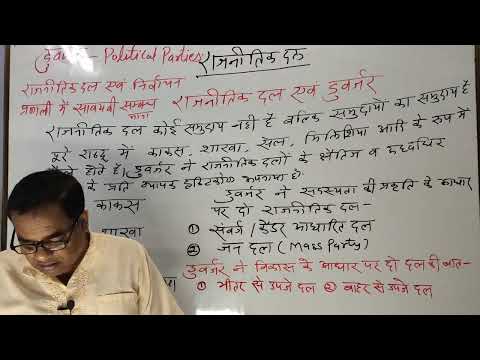 डुवर्जर - Political Parties
राजनीतिक दल
राजनीतिक दल एवं निर्वाचन
प्रणाली में सावयवी सम्बन्ध राजनीतिक दल एवं डुवर्जर
माना
राजनीतिक दल कोई समुदाय नहीं है बल्कि समुदायों का समुदाय है
पूरे राष्ट्र में काकस, शाखा, सेल, मिलिशिया आदि के रूप में
फैले होते हैं। डुवर्जर ने राजनीतिक दलों के क्षैतिज व
के प्रति व्यापक दृष्टिकोण अपनाया है।
काकस
शाखा
डुवर्जर ने सदस्यता की प्रकृति के आधार
पर दो राजनीतिक दल-
① संवर्ग / कैडर आधारित दल
② जन दल (Mass Party)
डुवर्जर ने विकास के आधार पर दो दल की बात-
① भीतर से उपजे दल ② बाहर से उपजे दल